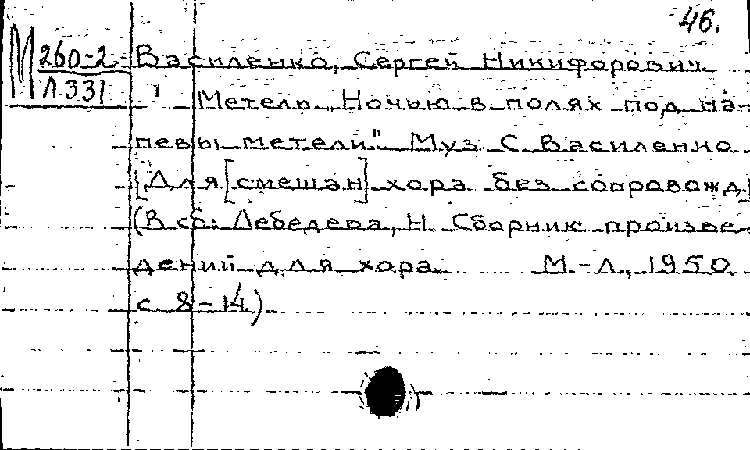 46.
М 260-2 Василенко, Сергей Никифорович
Л 331 Метель „Ночью в полях под на-
певы метели" Муз С. Василенко
[Для [смешан] хора без сопровожд]
(В сб: Лебедева, Н. Сборник произве-
дений для хора М.-Л., 1950
с 8-14)